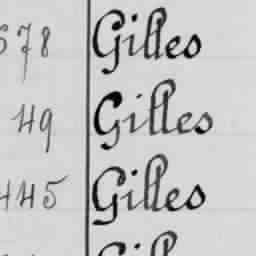 678 Gilles
49 Gilles
445 Gilles